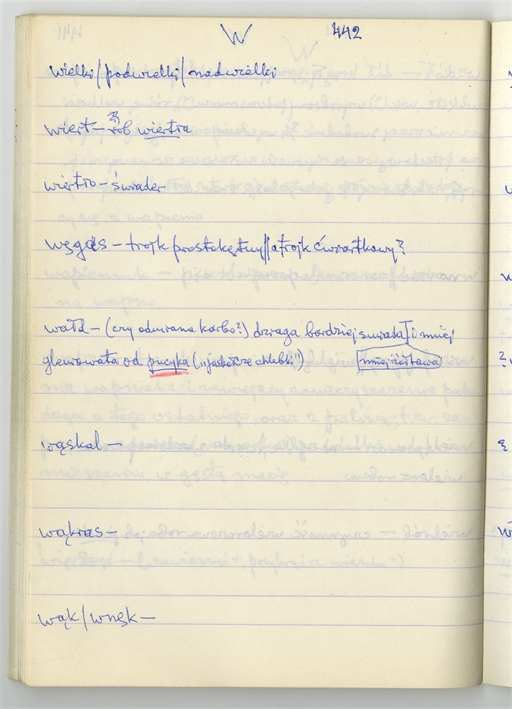 W 442
wielki/podwielki/nadwielki
wiert – rób wiertra
wiertro – świder
węgas – trojk prostokętny//a trojk ćwiartkowy?
wałd – (czy odmiana karbo?) dziaga bardziej i mniej
glewowata od pucyka ("jasketrze chlebki") mniej
wąskal –
wąkras –
wąk/wnęk –